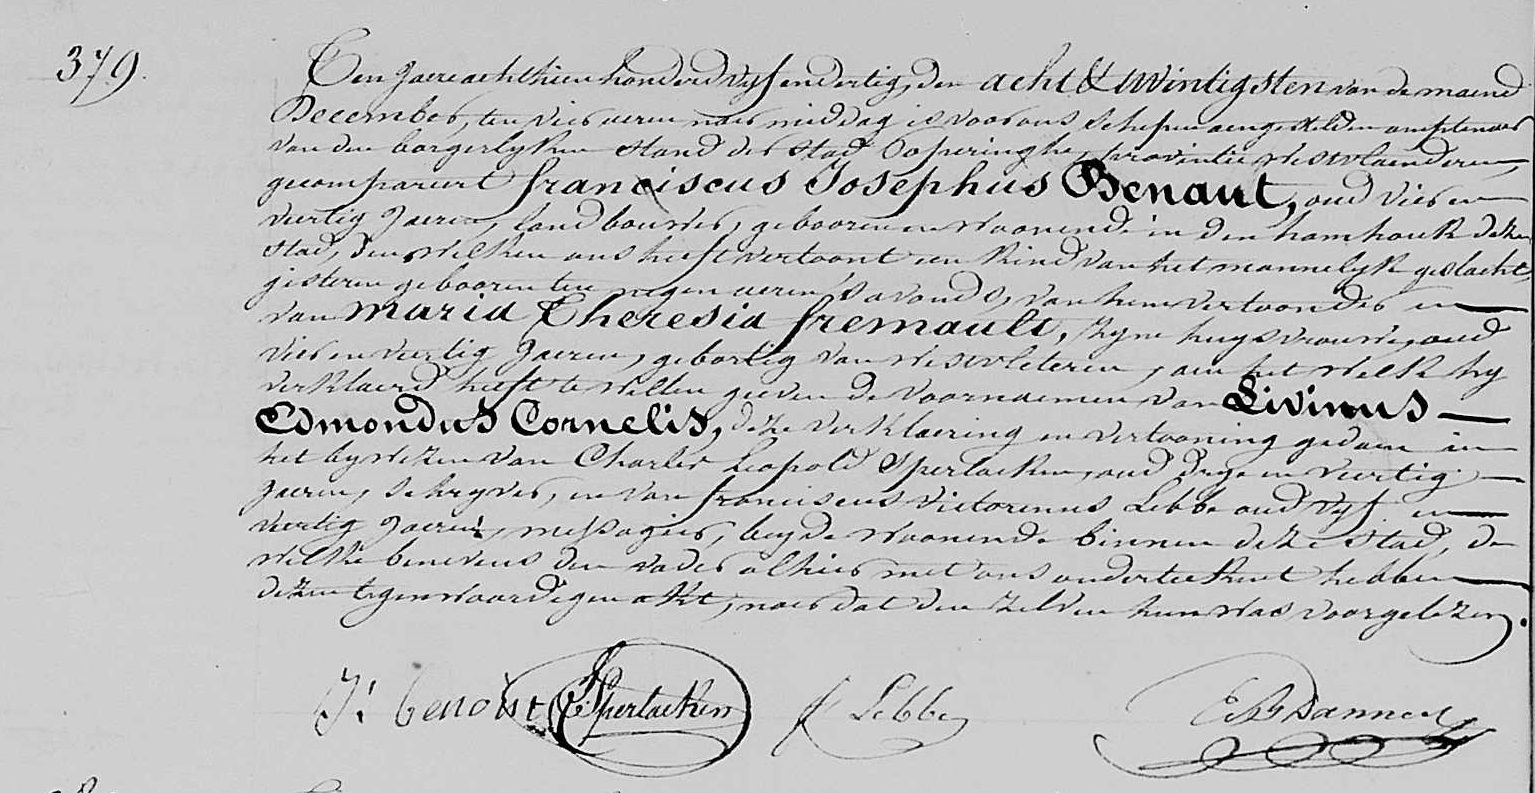 379.
Ten Jaere achthien honderd vyf en dertig, den acht & twintigsten van de maend
December, ten vier ueren naer middag is voor ons schepen aengestelden amptenaer
van den borgerlyken stand der stad Poperinghe, provintie Westvlaenderen,
gecompareert franciscus Josephus Benaut, oud vier en
veertig Jaeren, landbouwer, gebooren en woonende in den hamhouk dezer
stad, den welken ons heeft vertoont een kind van het mannelyk geslacht,
gisteren gebooren ten negen ueren s'avonds, van hem vertoonder en
van maria Theresia fremault, zyne huysvrouwe, oud
vier en veertig Jaeren, gebortig van Westvleteren, aen het welk hy
verklaerd heeft te willen geven de voornaemen van Livinus
Edmondus Cornelis, deze verklaering en vertooning gedaen in
het bywezen van Charles Leopold Sperlaeken, oud drye en veertig
Jaeren, schryver, en van franciscus victorinus Lebbe oud vyf en
veertig Jaeren, messagier, beyde woonende binnen deze stad, de
welke benevens den vader alhier met ons onderteekent hebben
dezen tegenwoordigen akt, naer dat den zelven hun was voorgelezen.
J: benoist CL Sperlaeken f Lebbe